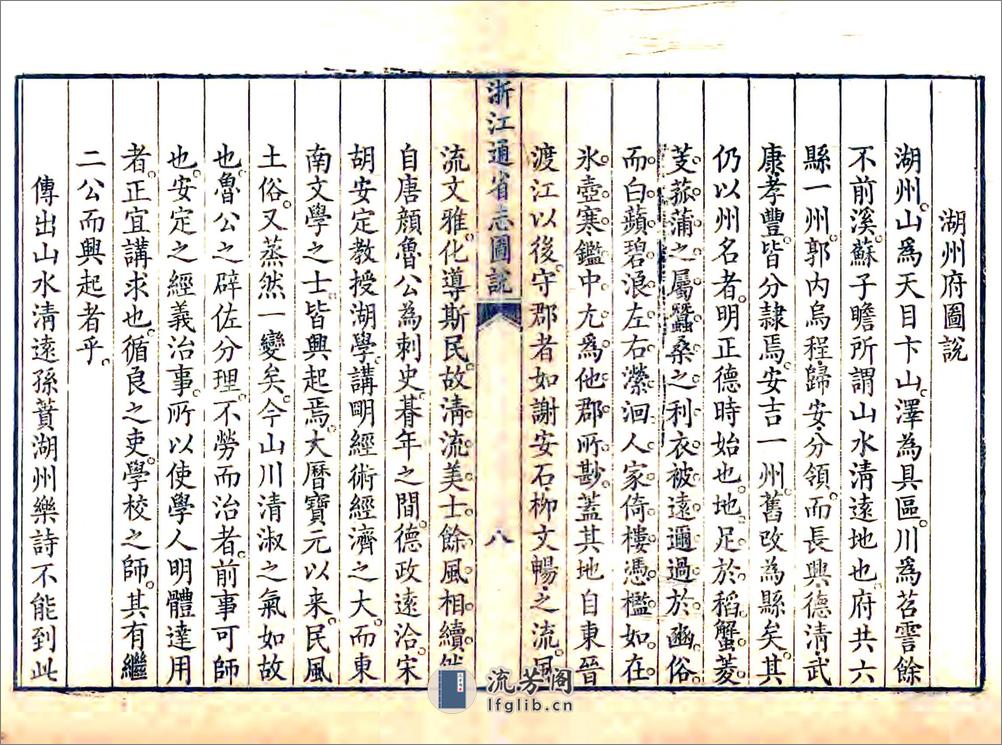 湖州府圖說
湖州山爲天目卞山澤為具區川爲苕霅餘
不前溪蘇子瞻所謂山水清遠地也府共六
縣一州郭内烏程歸安分領而長興德清武
康孝豐皆分隷焉安吉一州舊改為縣矣其
仍以州名者明正德時始也地足於稻蟹菱
芡菰蒲之屬蠶桑之利衣被遠邇過於豳俗
而白蘋碧浪左右瀠洄人家倚樓憑檻如在
氷壺寒鑑中尤爲他郡所尠蓋其地自東晉
渡江以後守郡者如謝安石柳文暢之流風
浙江通省志圖說
八
流文雅化導斯民故清流美士餘風相續然
自唐顔魯公為刺史朞年之間德政遠洽宋
胡安定教授湖學講明經術經濟之大而東
南文學之士皆興起焉大曆寶元以来民風
土俗又蒸然一變矣今山川清淑之氣如故
也魯公之辟佐分理不勞而治者前事可師
也安定之經義治事所以使學人明體達用
者正宜講求也循良之吏學校之師其有繼
二公而興起者乎
傳出山水清遠孫蕡湖州樂詩不能到此
流芳阁
lfglib.cn